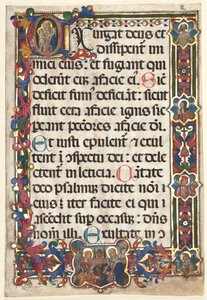 Exurgat deus et
dissipent in
imici eius: et fugiant qui
oderūt eū a facie ei9. Sic
deficit fum9 deficiāt: sicut
fluit cera a facie ignis sic
pereant pccōres a facie dī.
Et iusti epulent et exul
tent ī cōspectu dei: et dele
ctent in leticia. Cātate
deo psalmū dicite nōi
eius iter facite ei qui
ascēdit sup occasū: dñs
nom illi. Exultate in